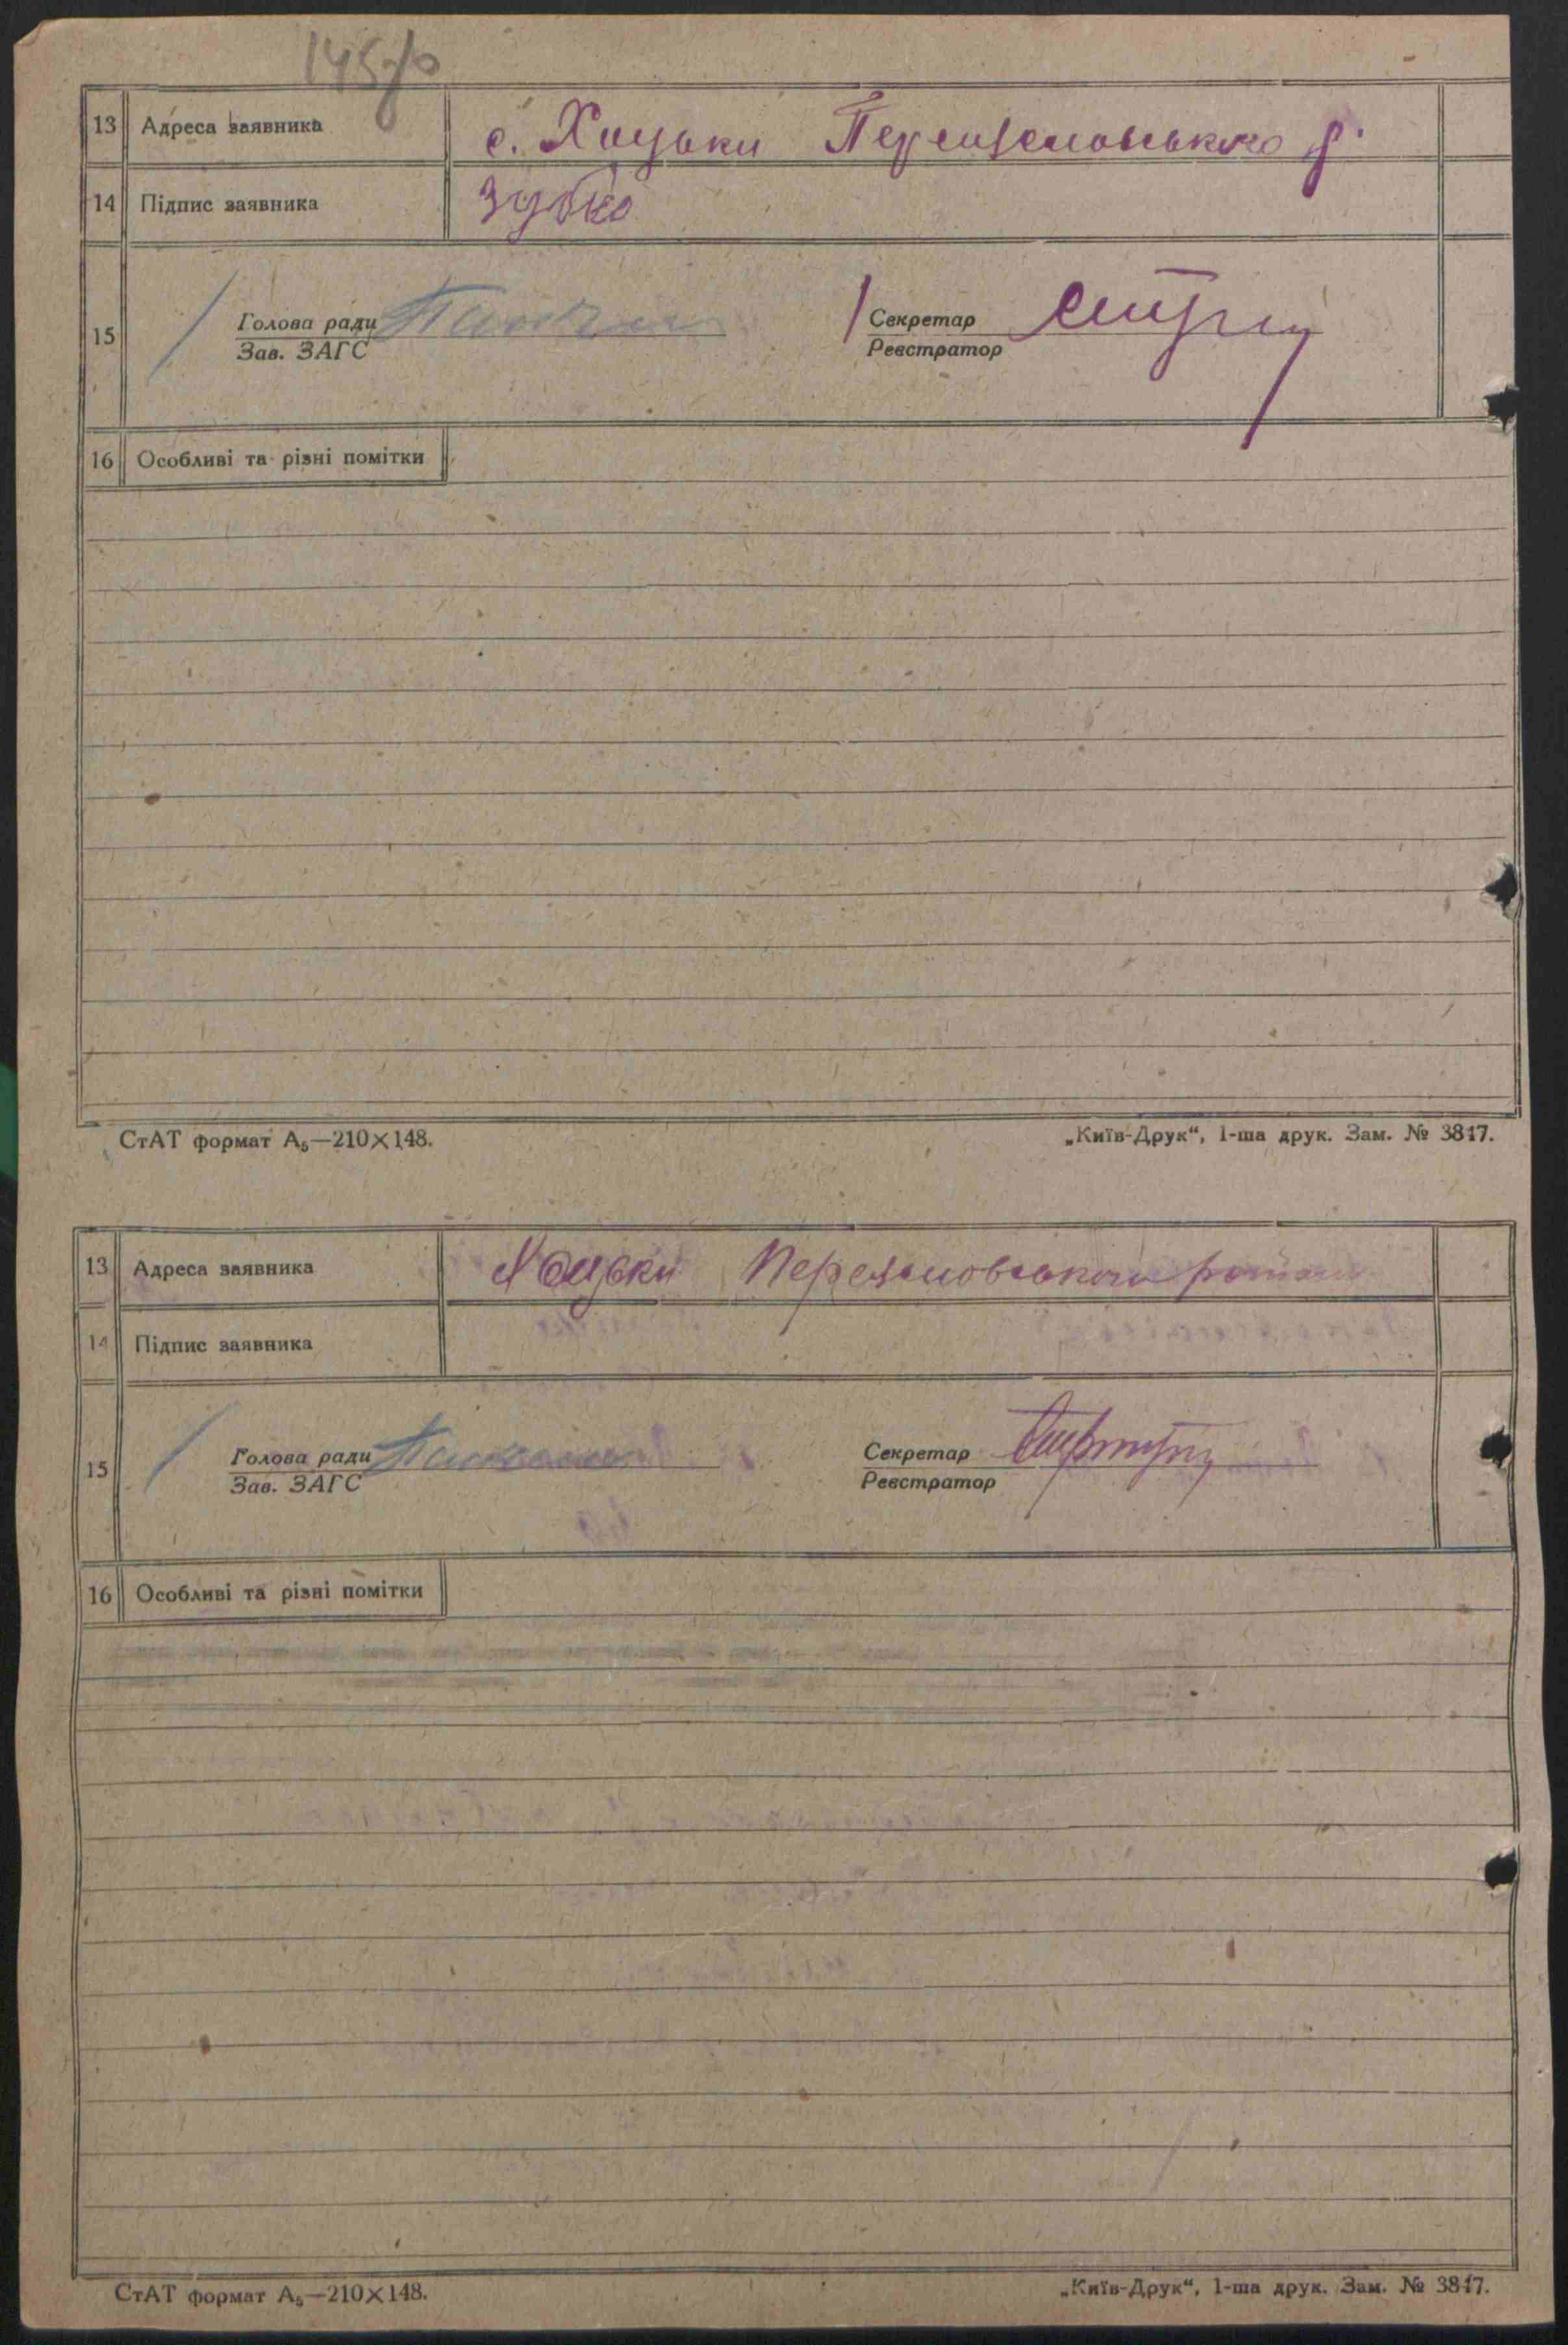 145зв
13 Адреса заявника с. Хоцьки Переяславського р.
14 Підпис заявника Зубко
15 Голова ради Секретар
Зав. ЗАГС Реєстратор
16 Особливі та різні помітки
СтАТ формат А₅—210×148. „Київ-Друк“, 1-ша друк. Зам. № 3817.
13 Адреса заявника Хоцьки
14 Підпис заявника
15 Голова ради Секретар
Зав. ЗАГС Реєстратор
16 Особливі та різні помітки
СтАТ формат А₅—210×148. „Київ-Друк“, 1-ша друк. Зам. № 3817.